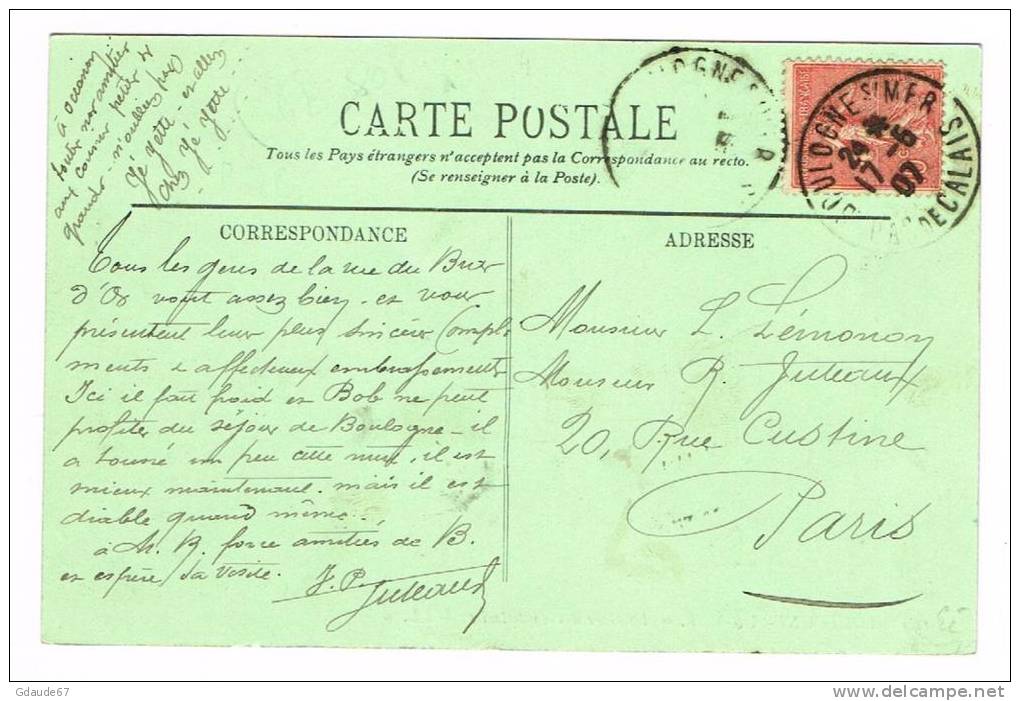 CARTE POSTALE
Tous les Pays étrangers n'acceptent pas la Correspondance au recto.
(Se renseigner à la Poste).
BOULOGNE S/MER
24 -6
17 07
PAS DE CALAIS
CORRESPONDANCE
Tous les gens de la rue du Bras
d'Or vont assez bien - et vous
présentent leur plus sincères Compli-
ments & affectueux embrassements
Ici il fait froid et Bob ne peut
profiter du séjour de Boulogne - il
a toussé un peu cette nuit, il est
mieux maintenant. mais il est
diable quand même.
à M. R. force amitiés de B.
et espère sa visite. J. P. Juteaux
ADRESSE
Monsieur L. Lémonon
Monsieur R. Juteaux
20, Rue Custine
Paris
toute nos amitiés
n'oubliez pas
et allez
chez
Gdaude67
delcampe.net